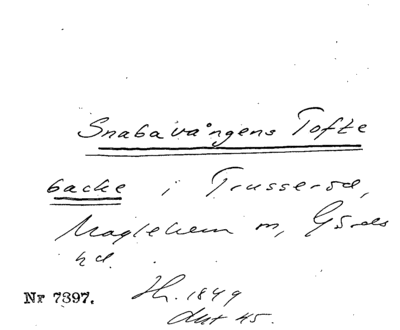 Snabavångens Tofte
backe i Trusseröd,
Maglehem sn, Gärds
hd.
Nr 7397. Hr. 1849
dat 45.